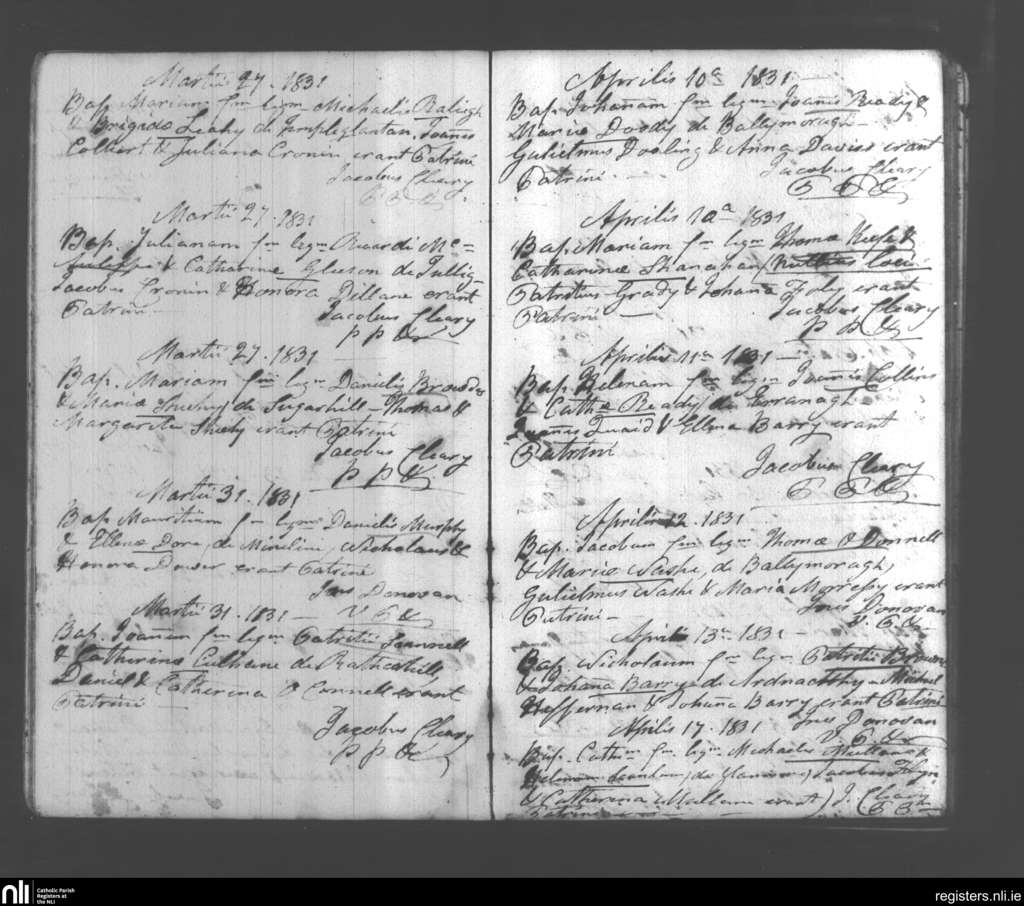 Martii 27. 1831
Bap. Mariam fm legm Michaelis Raligh
& Brigidæ Leahy de Templeglantan. Joannes
Colbert & Juliana Cronin erant Patrini
Jacobus Cleary
P P &
Martii 27. 1831
Bap. Julianam fm legm Ricardi Mc=
& Catharinæ Gleeson de Tullig_
Jacobus Cronin & Honora Dillane erant
Patrini
Jacobus Cleary
P P &
Martii 27. 1831
Bap. Mariam fm legm Danielis
& Mariæ Sheehy de Sugarhill _ Thomas &
Margarita Sheehy erant Patrini
Jacobus Cleary
P P &
Martii 31. 1831
Bap Mauritium fm legm Danielis Murphy
& Ellenæ Dore, de, Nicholaus &
Honora Dower erant Patrini
Jnes Donovan
Martii 31. 1831
Bap. Joannem fm legm Patritii Scannell
& Catherinæ Culhane de Rathcahill,
Daniel & Catherina O Connell erant
Patrini
Jacobus Cleary
P P &
Aprilis 10a 1831
Bap. Johanam fm legm Joannis Ready &
Mariæ Doody de Ballymoragh _
Gulielmus Dooling & Anna Davies erant
Patrini
Jacobus Cleary
P P &
Aprilis 10a 1831
Bap. Mariam fm legm Thomæ &
Catharinæ Shanahan
Patritius Grady & Johana Foley erant
Patrini
Jacobus Cleary
P P &
Aprilis 11a 1831
Bap. Helenam fm legm Joannis Collins
& Cathæ Ready, de
Joannes Quaid & Ellena Barry erant
Patrini
Jacobus Cleary
P P &
Aprilis 12. 1831
Bap. Jacobum fm legm Thomæ O Donnell
& Mariæ, de Ballymoragh,
Gulielmus & Maria erant
Patrini _
Jnes Donovan
Aprilis 13. 1831
Bap. Nicholaum fm legm Patritii Brown
& Johana Barry de Michael
Heffernan & Johana Barry erant Patrini
Jnes Donovan
Aprilis 17. 1831
Bap. Cathm fm legm Michaelis
Helenæ, de, Jacobus Flyn
& Catherina erant J. Cleary
Patrini
nli
Catholic Parish
Registers at
the NLI
registers.nli.ie